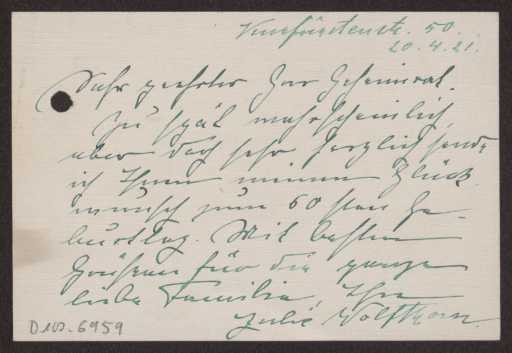 Kurfürstenstr. 50.
20.4.21.
Sehr geehrter Herr Geheimrat.
Zu spät wahrscheinlich,
aber doch sehr herzlich sende
ich Ihnen meinen Glück
wunsch zum 60 sten Ge-
burtstag. Mit besten
Grüssen für die ganze
liebe Familie, Ihre
Julie Wolfthorn.
D 102.6959